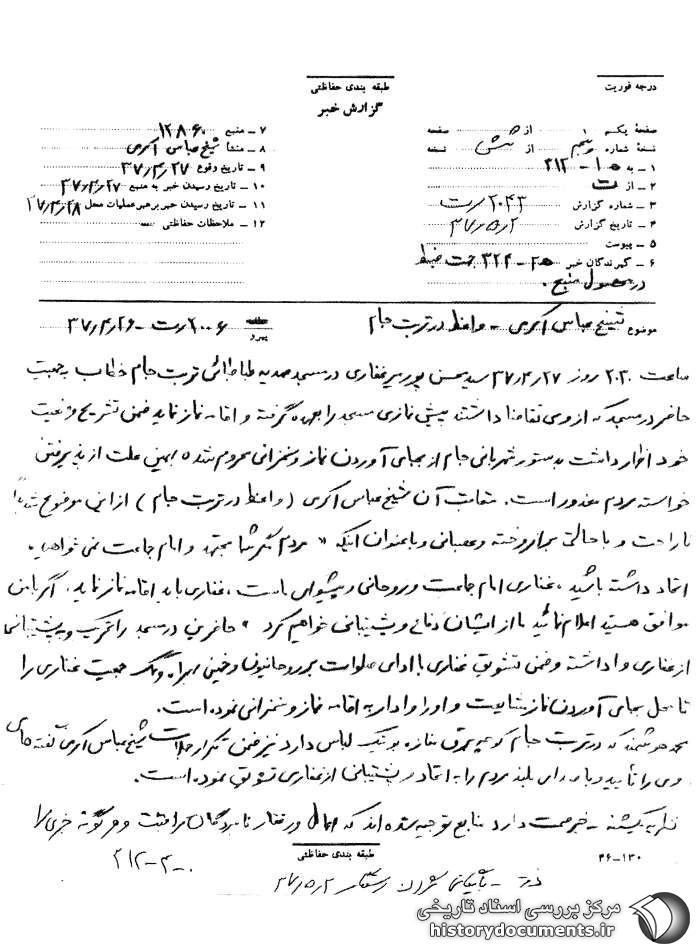 طبقه بندی حفاظتی
درجه فوریت
گزارش خبر
صفحهٔ یکم ۱ از صفحه
نسخهٔ شماره پنجم از شش نسخه
۱ ـ به ۱۰ه ـ ۲۱۲
۲ ـ از ت
۳ ـ شماره گزارش ۲۰۴۳
۴ ـ تاریخ گزارش ۳۷٫۵٫۲
۵ ـ پیوست
۶ ـ گیرندگان خبر ۲۵ ـ ۳۲۴ جهت ضبط
در محصول منبع .
۷ ـ منبع ۱۲۸۶۰
۸ ـ منشأ شیخ عباس اکرمی
۹ ـ تاریخ وقوع ۳۷٫۴٫۲۷
۱۰ ـ تاریخ رسیدن خبر به منبع ۳۷٫۴٫۲۷
۱۱ ـ تاریخ رسیدن خبر برهبر عملیات محل ۳۷٫۴٫۲۸
۱۲ ـ ملاحظات حفاظتی
موضوع شیخ عباس اکرمی ـ واعظ در تربت جام
پیرو ۲۰۰۶ ت ـ ۳۷٫۴٫۲۶
ساعت ۲۰۳۰ روز ۳۷٫۴٫۲۷ سید محسن پورمیرغفاری در مسجد صدیه طباطبائی تربت جام خطاب به جمعیت
حاضر در مسجد که از وی تقاضا داشتند پیش نمازی مسجد را بعهده گرفته و اقامه نماز نماید ضمن تشریح وضعیت
خود اظهار داشت بدستور شهربانی جام از بجای آوردن نماز و سخنرانی محروم شده بهمین علت از پذیرفتن
خواسته مردم معذور است . متعاقب آن شیخ عباس اکرمی ( واعظ در تربت جام ) از این موضوع شدیداً
ناراحت و با حالتی برافروخته و عصبانی و با عنوان اینکه « مردم مگر شما مجتهد و امام جماعت نمی خواهید ،
اتحاد داشته باشید ، غفاری امام جماعت و روحانی و پیشوای ما است ، غفاری باید اقامه نماز نماید ، اگر با من
موافق هستید اعلام نمائید ما از ایشان دفاع و پشتیبانی خواهیم کرد » حاضرین در مسجد را تحریک و پشتیبانی
از غفاری واداشته و ضمن تشویق غفاری با ادای صلوات بر روحانیون و خمینی جمعیت غفاری را
تا محل بجای آوردن نماز مشایعت و او را وادار به اقامه نماز و سخنرانی نموده است .
محمد هوشمند که در تربت جام مغازه بوتیک لباس دارد نیز ضمن تکرار جملات شیخ عباس اکرمی گفته های
وی را تأیید و با صدای بلند مردم را به اتحاد و پشتیبانی از غفاری تشویق نموده است .
نظریه یکشنبه ـ خبر صحت دارد منابع توجیه شده اند که اعمال و رفتار نامبردگان را مراقبت و هرگونه خبری را
طبقه بندی حفاظتی
۳۶-۱۳۰
۲۱۲ـ۴ـ۰
۳۷٫۵٫۲
مرکز بررسی اسناد تاریخی
historydocuments.ir